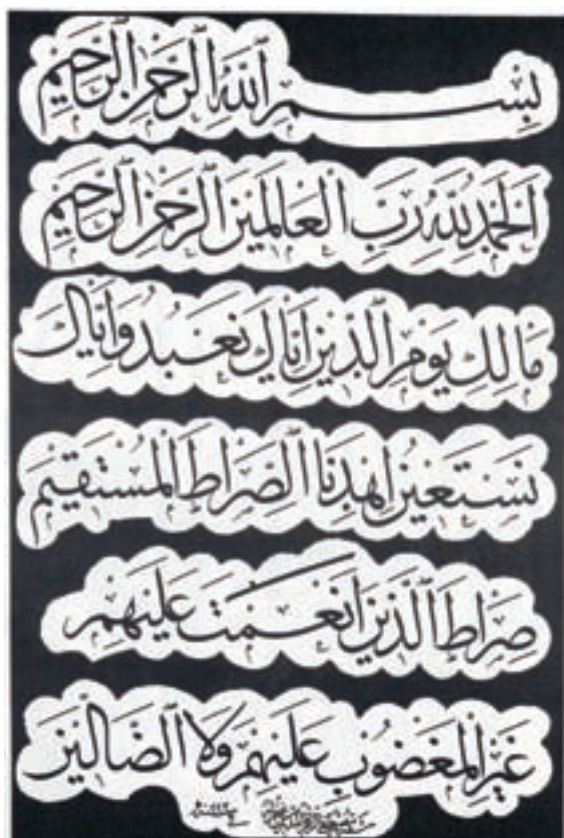 بِسْمِ اللّٰهِ الرَّحْمٰنِ الرَّحِيمِ
اَلْحَمْدُ لِلّٰهِ رَبِّ الْعَالَمِينَ الرَّحْمٰنِ الرَّحِيمِ
مَالِكِ يَوْمِ الدِّينِ اِيَّاكَ نَعْبُدُ وَاِيَّاكَ
نَسْتَعِينُ اِهْدِنَا الصِّرَاطَ الْمُسْتَقِيمَ
صِرَاطَ الَّذِينَ اَنْعَمْتَ عَلَيْهِمْ
غَيْرِ الْمَغْضُوبِ عَلَيْهِمْ وَلَا الضَّالِّينَ